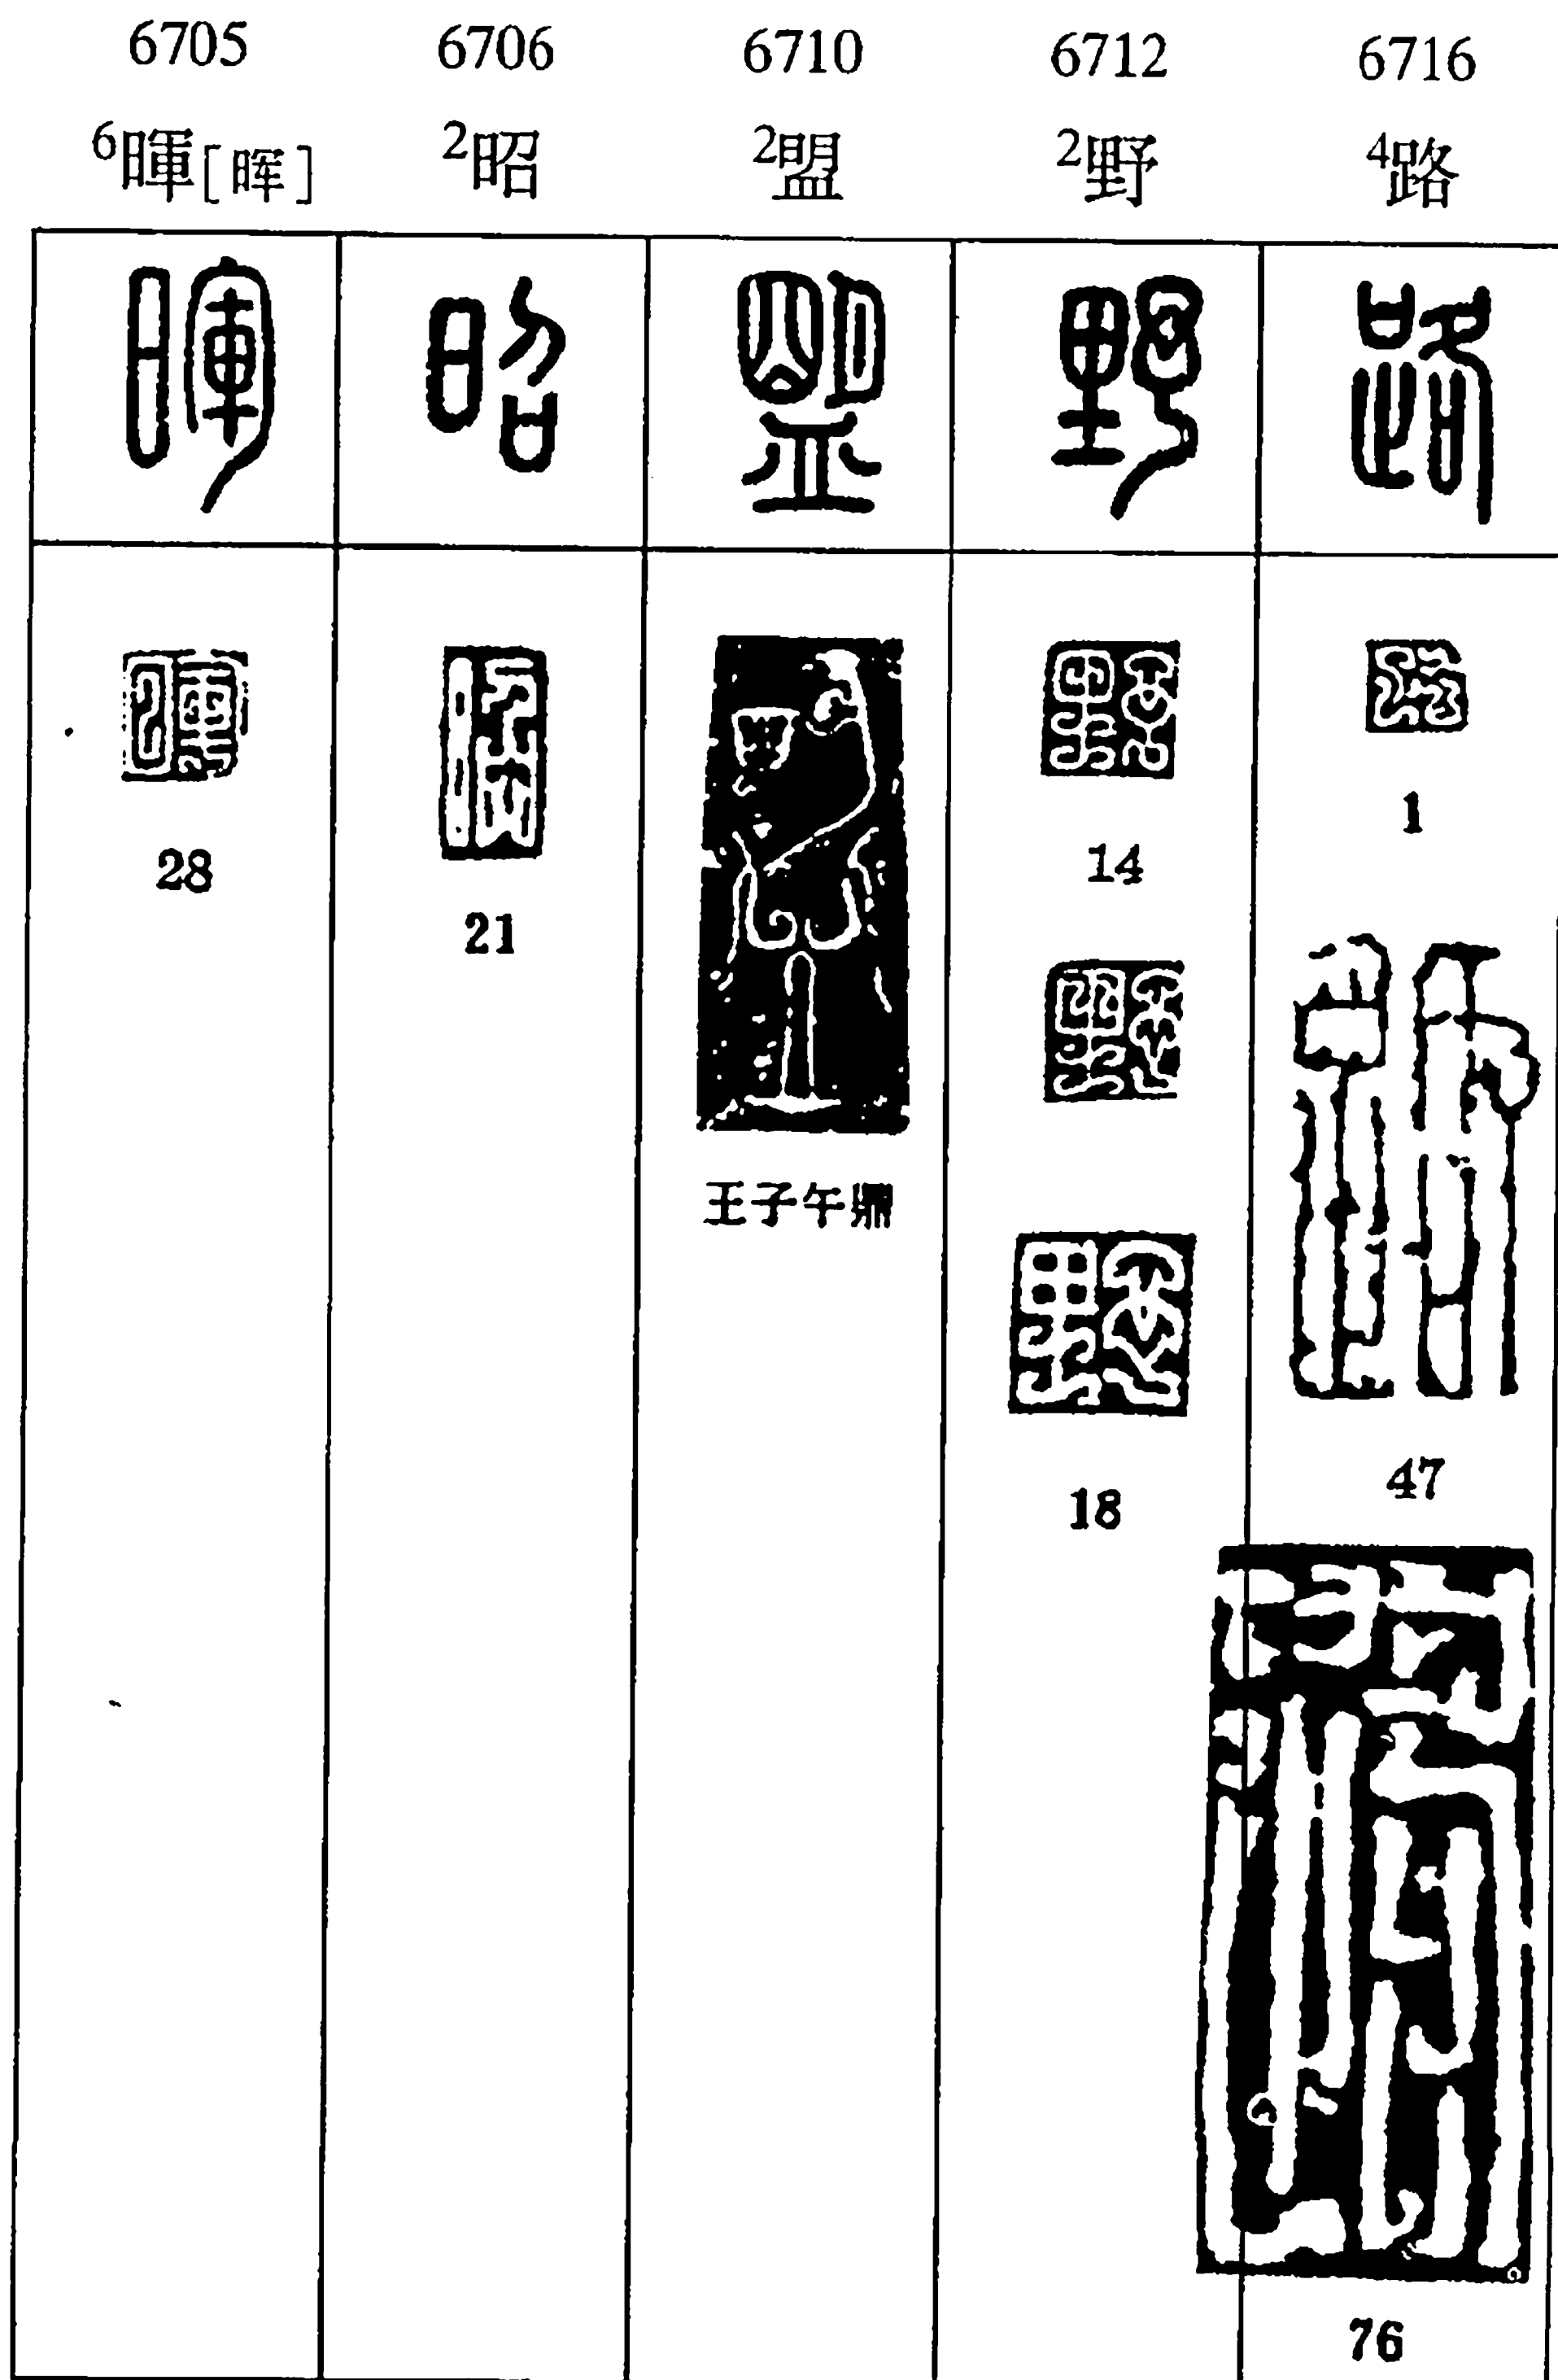 6705 6706 6710 6712 6716
6暉[晖] 2昭 2盟 2野 4路
暉 昭 盟 野 路
28
21
王子午鼎
14
18
1
47
76